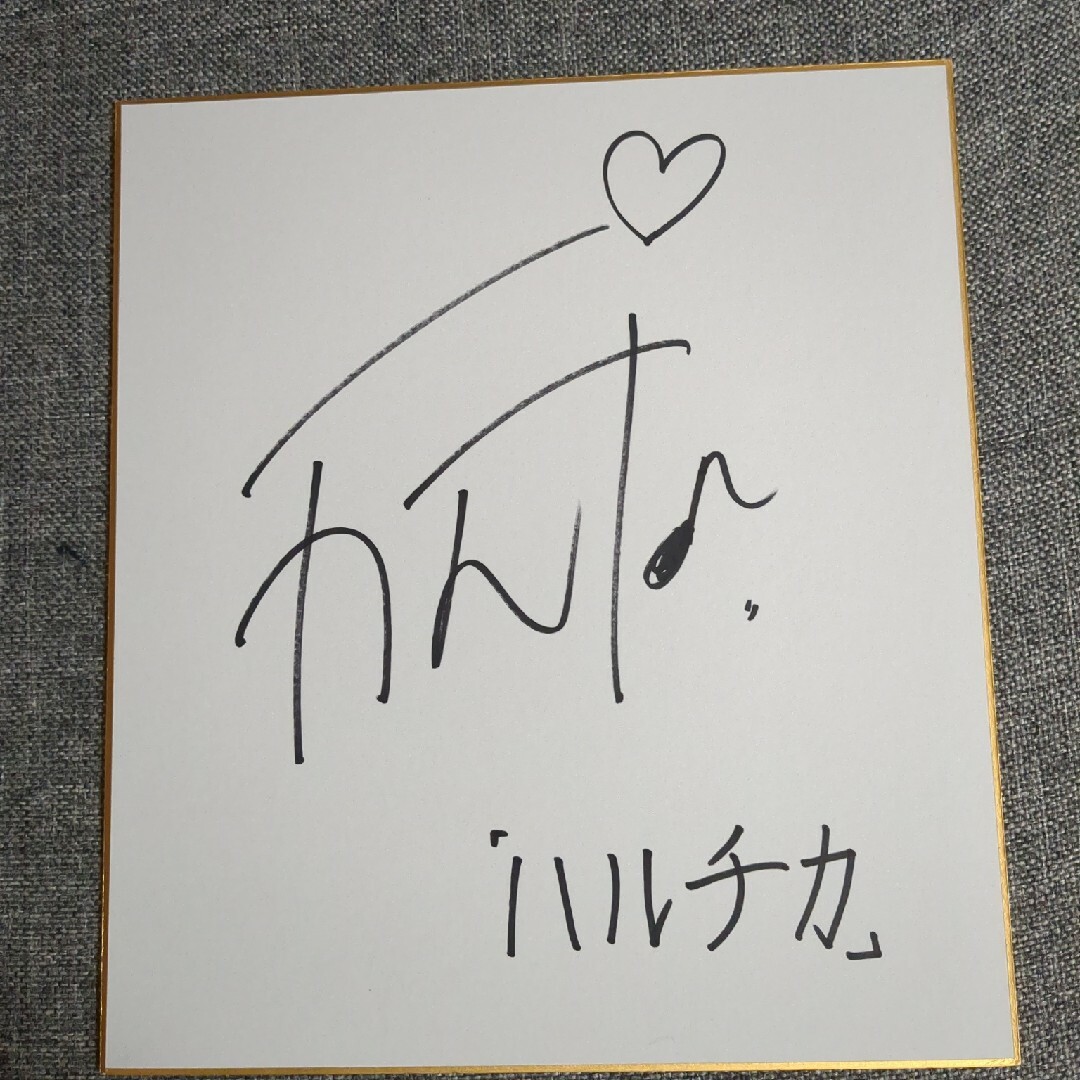 かんな
「ハルチカ」